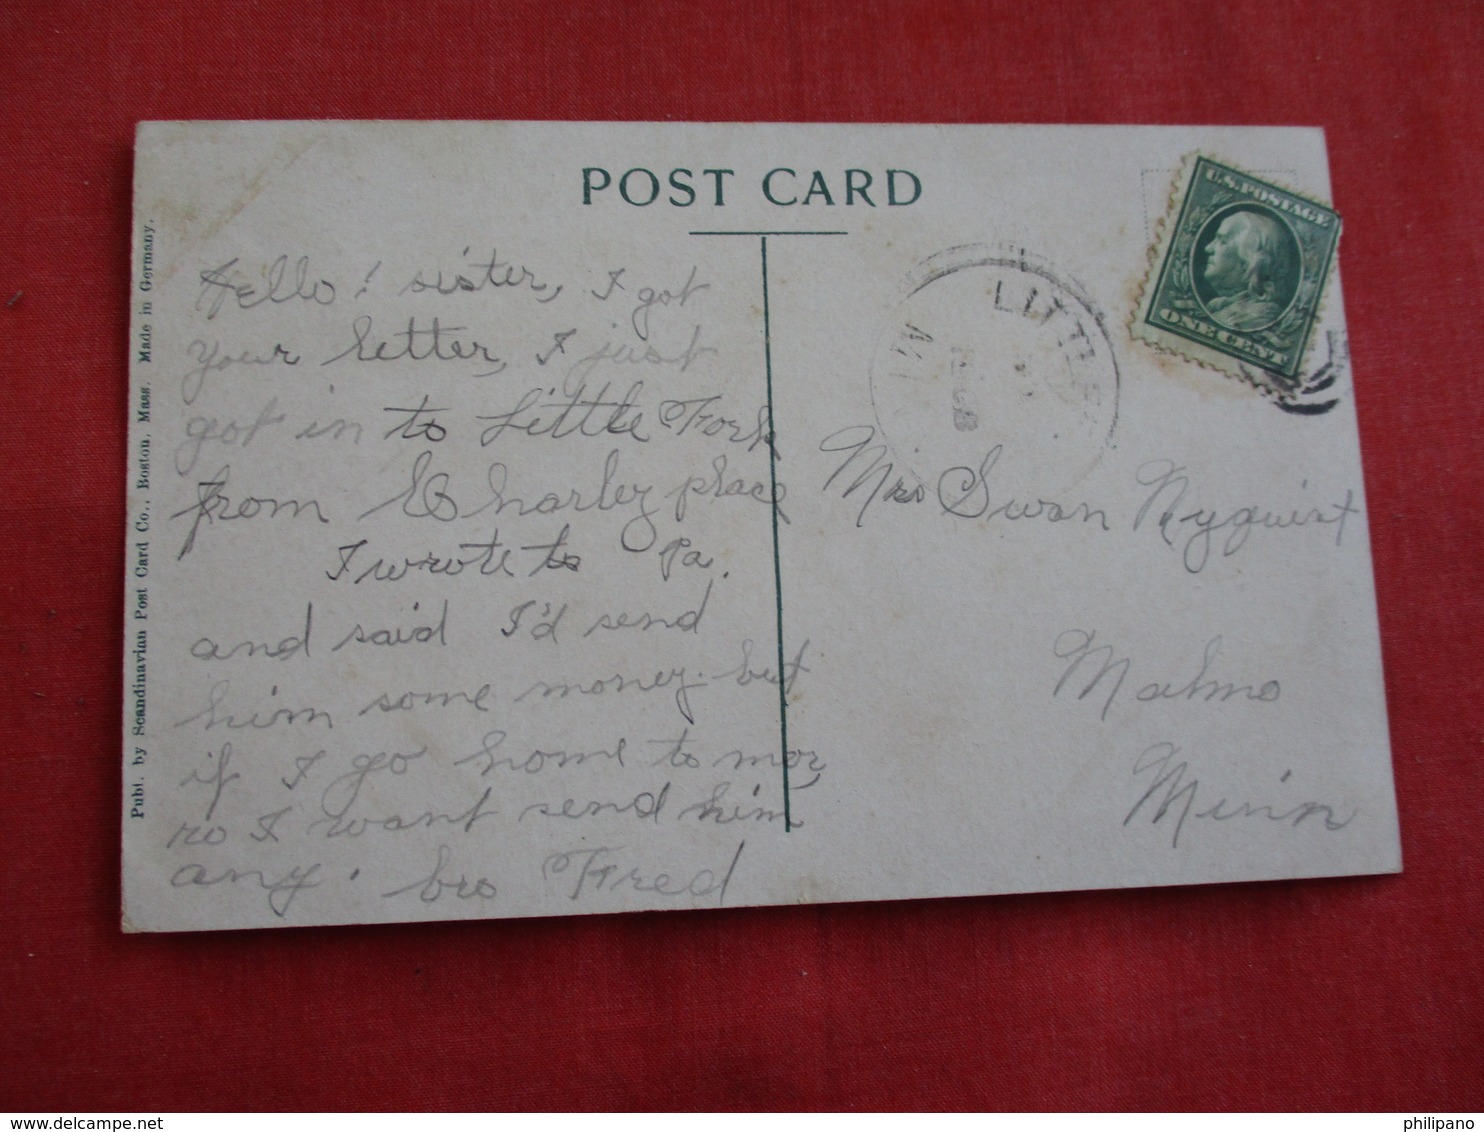 POST CARD
Publ. by Scandinavian Post Card Co., Boston, Mass. Made in Germany.
Hello! sister, I got
your letter, I just
got in to Little Fork
from Charley place
I wrote to Pa.
and said I'd send
him some money. but
if I go home to mor,
ro I want send him
any. bro Fred
LITTLE
MIN
U.S. POSTAGE
ONE CENT
Mrs Swan Nyquist
Malmo
Minn
delcampe.net
philipano